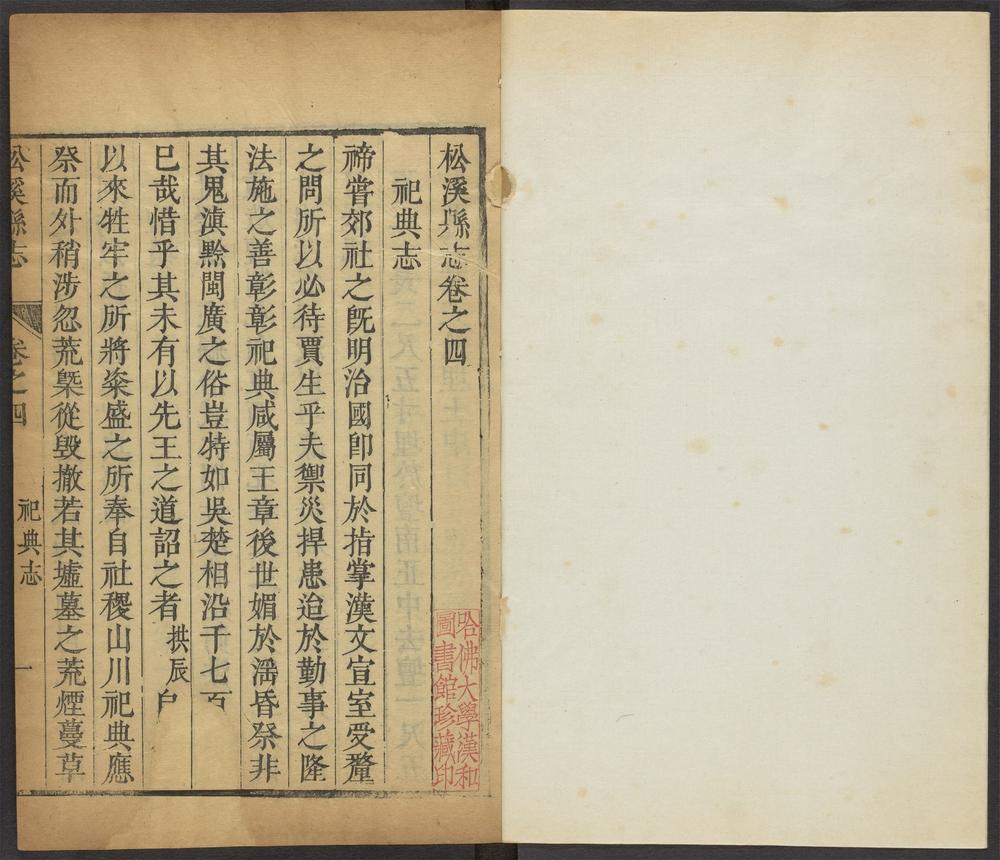 松溪縣志卷之四
祀典志
禘嘗郊社之旣明治國卽同於指掌漢文宣室受釐
之問所以必待賈生乎夫禦災捍患迨於勤事之隆
法施之善彰彰祀典咸屬王章後世媚於淫昏祭非
其鬼滇黔閩廣之俗豈特如吳楚相沿千七百
巳哉惜乎其未有以先王之道詔之者拱辰自
以來牲牢之所將粢盛之所奉自社稷山川祀典應
祭而外稍涉忽荒槩從毀撤若其墟墓之荒煙蔓草
松溪縣志 卷之四 祀典志 一
哈佛大學漢和
圖書館珍藏印